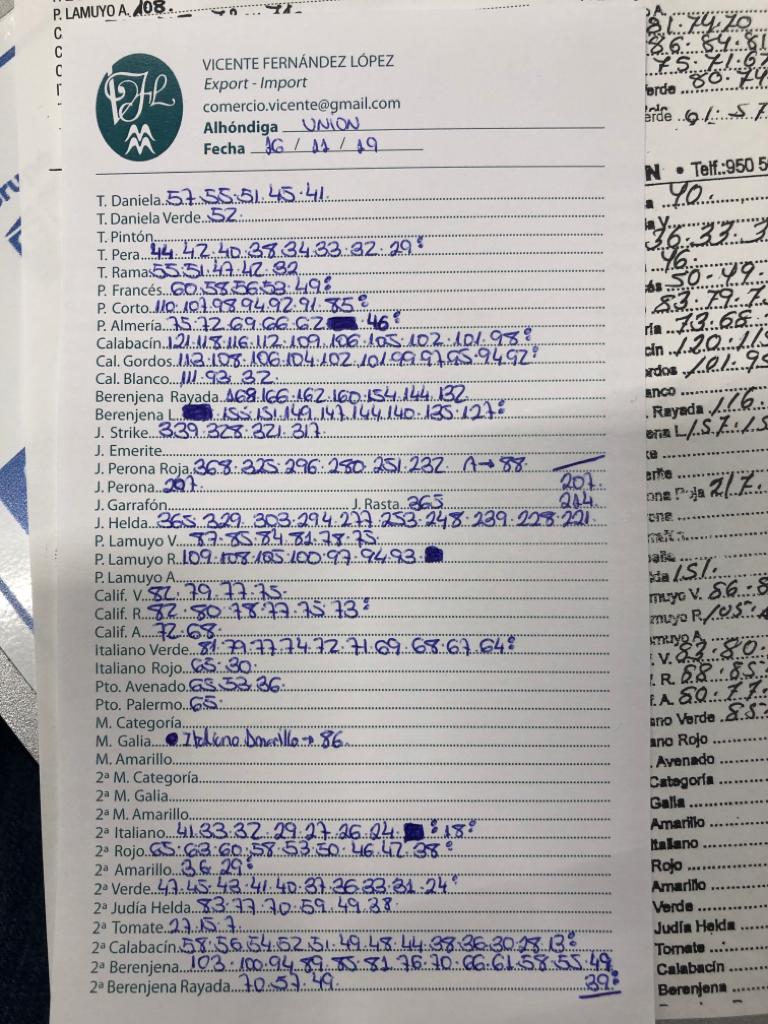 P. LAMUYO A. 108.
VICENTE FERNÁNDEZ LÓPEZ
Export - Import
comercio.vicente@gmail.com
Alhóndiga UNION
Fecha 16 / 11 / 19
T. Daniela 57.55.51.45.41.
T. Daniela Verde 52.
T. Pintón
T. Pera 44.42.40.38.34.33.32.29:
T. Ramas 55.51.47.42.32
P. Francés 60.58.56.53.49:
P. Corto 110.107.98.94.92.91.85:
P. Almería 75.72.69.66.62 .46:
Calabacín 121.118.116.112.109.106.105.102.101.98:
Cal. Gordos 113.108.106.104.102.101.99.97.95.94.92:
Cal. Blanco 111.93.32.
Berenjena Rayada 168.166.162.160.154.144.132
Berenjena L. 155.151.149.147.144.140.135.127:
J. Strike 339.328.321.317.
J. Emerite
J. Perona Roja 368.325.296.280.251.232. A→88.
J. Perona 207. 207.
J. Garrafón J. Rasta 365 214.
J. Helda 365.329.303.294.277.253.248.239.228.221.
P. Lamuyo V. 87.85.84.81.78.75.
P. Lamuyo R. 109.108.105.100.97.94.93.
P. Lamuyo A.
Calif. V. 82.79.77.75.
Calif. R. 82.80.78.77.75.73:
Calif. A. 72.68.
Italiano Verde 81.79.77.74.72.71.69.68.67.64:
Italiano Rojo 65.30.
Pto. Avenado 65.53.36.
Pto. Palermo 65.
M. Categoría
M. Galia Italiano Amarillo→86.
M. Amarillo
2ª M. Categoría
2ª M. Galia
2ª M. Amarillo
2ª Italiano 41.33.32.29.27.26.24. : 18:
2ª Rojo 65.63.60.58.53.50.46.42.38:
2ª Amarillo 36.29:
2ª Verde 47.45.43.41.40.37.36.33.31.24:
2ª Judía Helda 83.77.70.59.49.38.
2ª Tomate 27.15.7.
2ª Calabacín 58.56.54.52.51.49.48.44.38.36.30.28.13:
2ª Berenjena 103.100.94.89.85.81.76.70.66.61.58.55.49.
2ª Berenjena Rayada 70.57.49. 39:
81.74.70
86.84.81
75.71.67
80.74
61.57
Telf.:950 5
40.
36.33.3
46.
50.49.
83.79.7
73.68
120.115
101.95
Rayada 116.
L 157.15
217.
151.
V. 86.8
R. 105.
V. 83.80.
R. 88.85.
A. 80.77.
Verde 85
Rojo
Avenado
Categoría
Galia
Amarillo
Italiano
Rojo
Amarillo
Verde
Judía Helda
Tomate
Calabacín
Berenjena